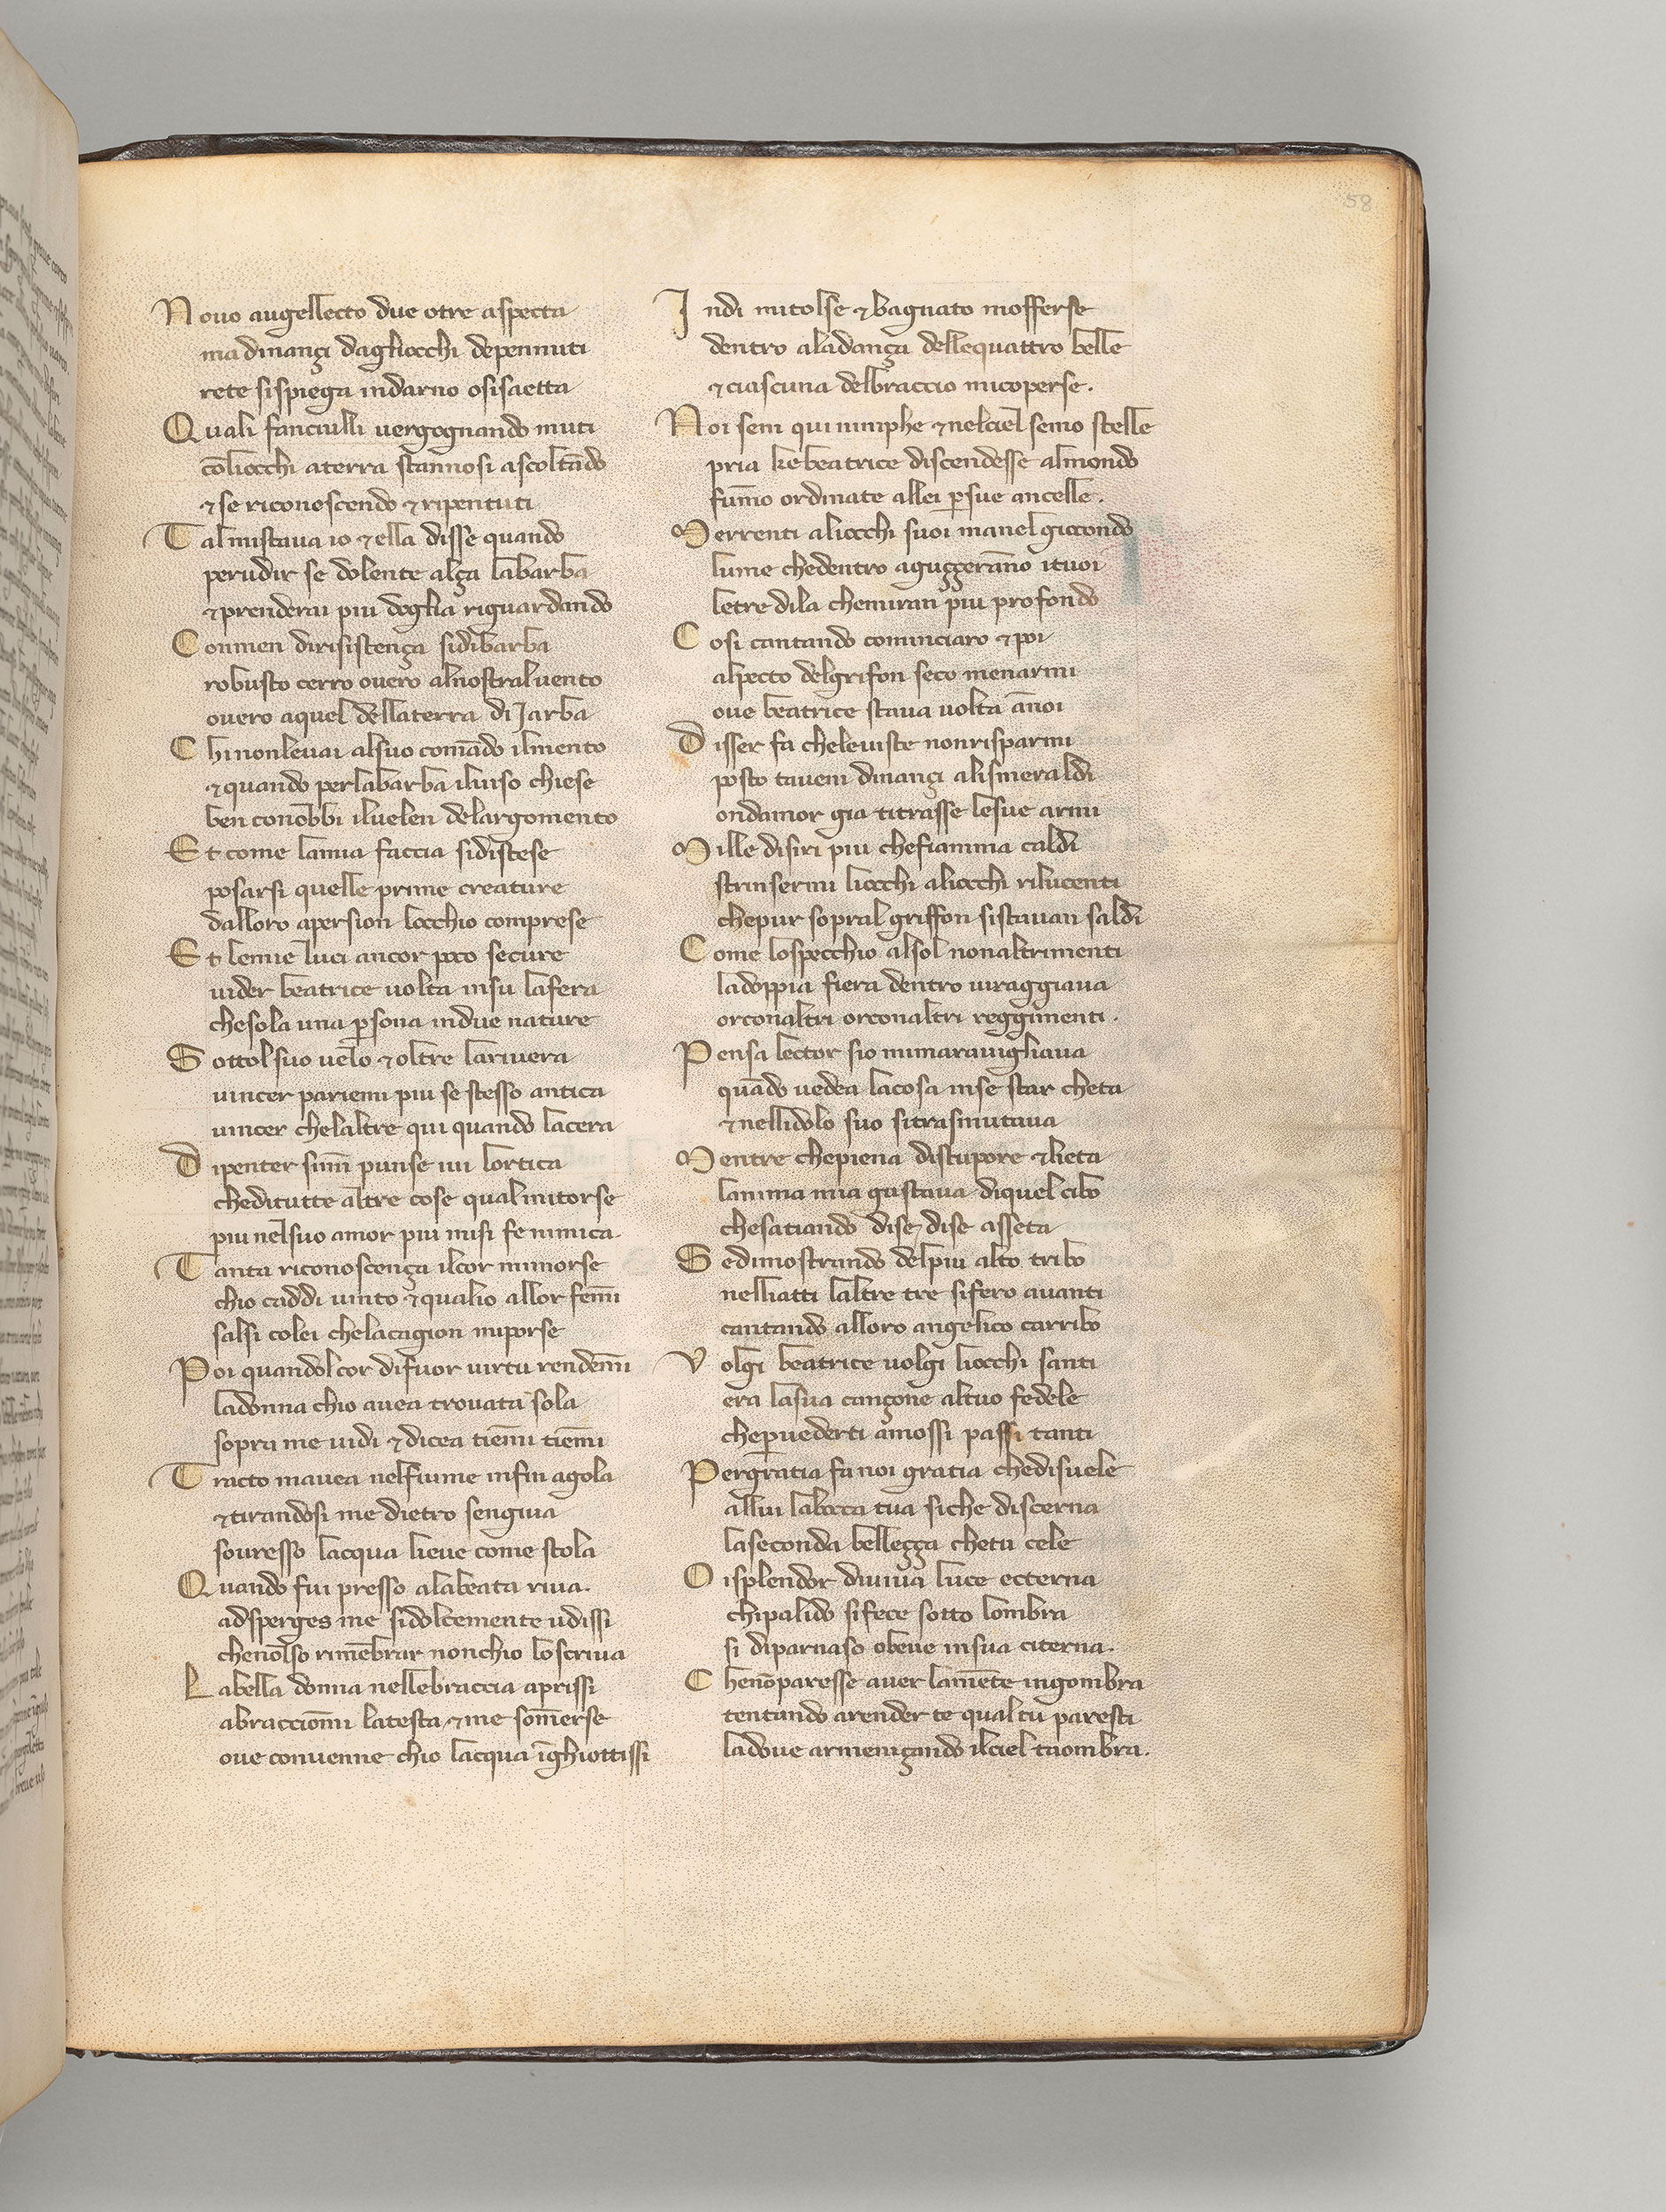 58
Novo augellecto due otre aspecta
ma dinançi dagliocchi depennuti
rete sispiega indarno osisaetta
Quali fanciulli vergognando muti
cōliocchi aterra stannosi ascoltādo
⁊ se riconoscendo ⁊ ripentuti
Tal mistava io ⁊ ella disse quando
perudir se dolente alça labarba
⁊ prenderai piu doglia riguardando
Conmen dirisistença sidibarba
robusto cerro overo alnostral vento
overo aquel dellaterra di Jarba
Chinonlevai alsuo comādo ilmento
⁊ quando perlabarba ilviso chiese
ben conobbi ilvelen delargomento
Et come lamia faccia sidistese
posarsi quelle prime creature
dalloro apersion locchio comprese
Et lemie luci ancor poco secure
vider beatrice volta insu lafera
chesola una ꝑsona indue nature
Sottol suo velo ⁊ oltre larivera
vincer pariemi piu se stesso antica
vincer chelaltre qui quando lacera
Dipenter simī punse ivi lortica
cheditutte altre cose qual mitorse
piu nelsuo amor piu misi fe nimica
Tanta riconoscença ilcor mimorse
chio caddi vinto ⁊ qualio allor femī
salsi colei chelacagion miporse
Poi quandol cor difuor virtu rendemī
ladonna chio avea trovata sola
sopra me vidi ⁊ dicea tiemī tiemī
Tracto mavea nelfiume infin agola
⁊ tirandosi me dietro sengiva
sovresso lacqua lieve come stola
Quando fui presso alabeata riva.
adsperges me sidolcemente udissi
chenolso rimēbrar nonchio loscriva
Labella donna nellebraccia aprissi
abracciomī latesta ⁊ me somērse
ove convenne chio lacqua īghiottissi
Indi mitolse ⁊ bagnato mofferse
dentro aladança dellequattro belle
⁊ ciascuna delbraccio micoperse.
Noi sem qui nimphe ⁊ nelciel semo stelle
pria ke beatrice discendesse almondo
fumō ordinate allei ꝑsue ancelle.
Merrenti aliocchi suoi manel giocondo
lume chedentro aguççerāno ituoi
letre dila chemiran piu profondo
Cosi cantando cominciaro ⁊ poi
alpecto delgrifon seco menarmi
ove beatrice stava volta ānoi
Disser fa cheleviste nonrisparmi
posto tavem dinançi alismeraldi
ondamor gia titrasse lesue armi
Mille disiri piu chefiamma caldi
strinsermi liocchi aliocchi rilucenti
chepur sopral griffon sistavan saldi
Come lospecchio alsol nonaltrimenti
ladoppia fiera dentro viraggiava
orconaltri orconaltri reggimenti.
Pensa lector sio mimaravigliava
quādo vedea lacosa inse star cheta
⁊ nellidolo suo sitrasmutava
Mentre chepiena distupore ⁊ lieta
lanima mia gustava diquel cibo
chesatiando dise dise asseta
Sedimostrando delpiu alto tribo
nelliatti laltre tre sifero avanti
cantando alloro angelico carribo
Volgi beatrice volgi liocchi santi
era lasua cançone altuo fedele
cheꝑvederti āmossi passi tanti
Pergratia fa noi gratia chedisvele
allui labocca tua siche discerna
laseconda belleçça chetu cele
O isplendor diviva luce ecterna
chipalido sifece sotto lombra
si diparnaso obeve insua citerna.
Chenōparesse aver lamēte ingombra
tentando arender te qual tu paresti
ladove armeniçando ilciel taombra.